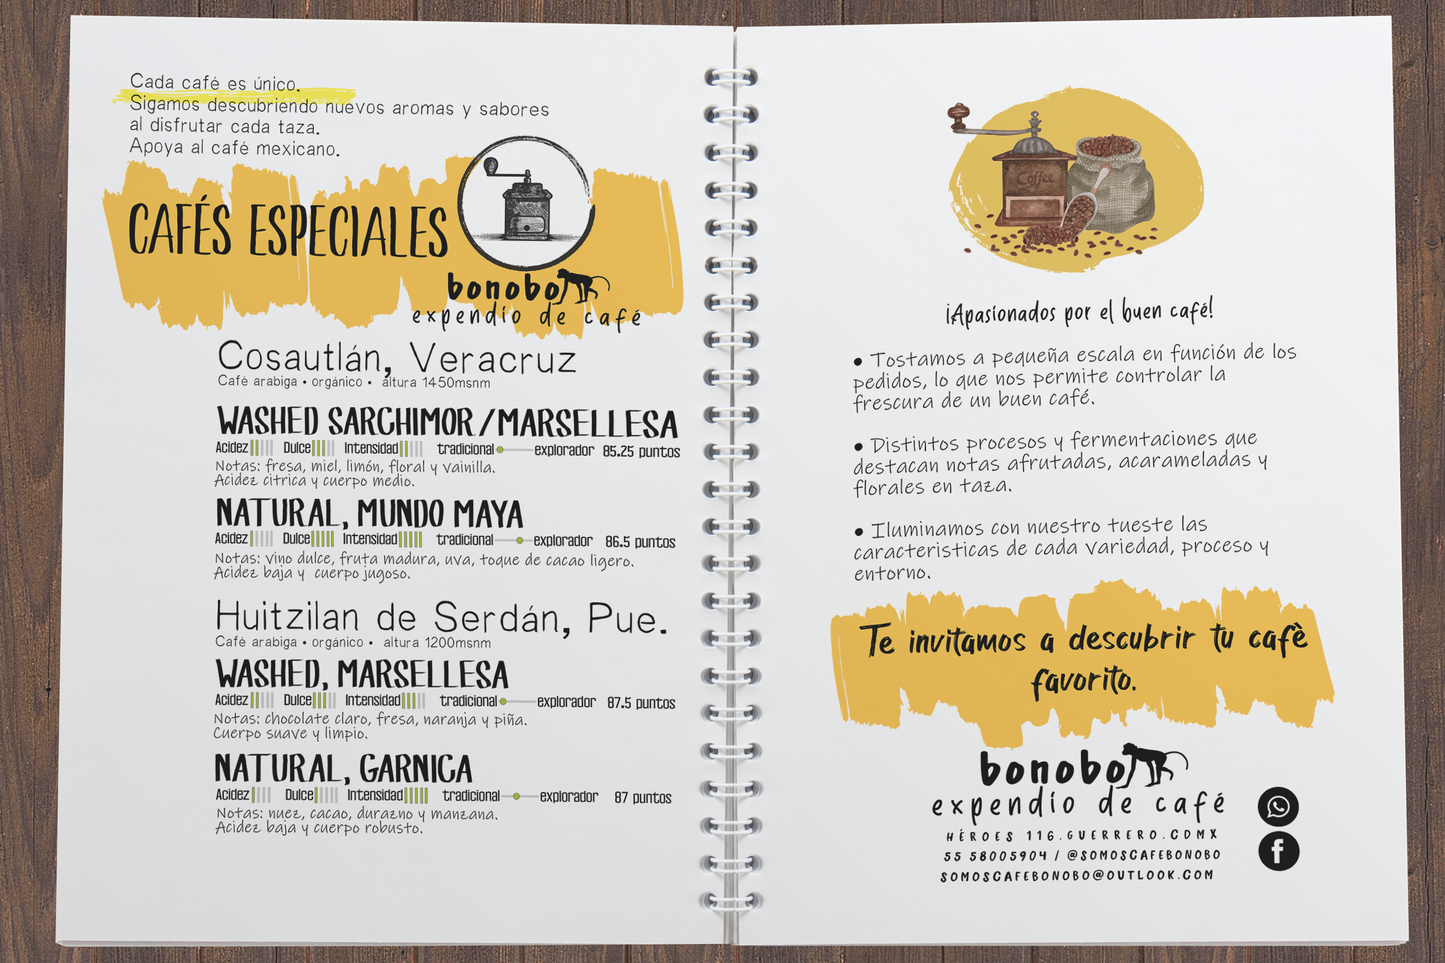 Cada café es único.
Sigamos descubriendo nuevos aromas y sabores
al disfrutar cada taza.
Apoya al café mexicano.
CAFÉS ESPECIALES
bonobo
expendio de café
Cosautlán, Veracruz
Café arabiga • orgánico • altura 1450msnm
WASHED SARCHIMOR/MARSELLESA
Acidez Dulce Intensidad tradicional explorador 85.25 puntos
Notas: fresa, miel, limón, floral y vainilla.
Acidez citrica y cuerpo medio.
NATURAL, MUNDO MAYA
Acidez Dulce Intensidad tradicional explorador 86.5 puntos
Notas: vino dulce, fruta madura, uva, toque de cacao ligero.
Acidez baja y cuerpo jugoso.
Huitzilan de Serdán, Pue.
Café arabiga • orgánico • altura 1200msnm
WASHED, MARSELLESA
Acidez Dulce Intensidad tradicional explorador 87.5 puntos
Notas: chocolate claro, fresa, naranja y piña.
Cuerpo suave y limpio.
NATURAL, GARNICA
Acidez Dulce Intensidad tradicional explorador 87 puntos
Notas: nuez, cacao, durazno y manzana.
Acidez baja y cuerpo robusto.
Coffee
¡Apasionados por el buen café!
• Tostamos a pequeña escala en función de los
pedidos, lo que nos permite controlar la
frescura de un buen café.
• Distintos procesos y fermentaciones que
destacan notas afrutadas, acarameladas y
florales en taza.
• Iluminamos con nuestro tueste las
caracteristicas de cada variedad, proceso y
entorno.
Te invitamos a descubrir tu cafè
favorito.
bonobo
expendio de café
HÉROES 116.GUERRERO.CDMX
55 58005904 / @SOMOSCAFEBONOBO
SOMOSCAFEBONOBO@OUTLOOK.COM